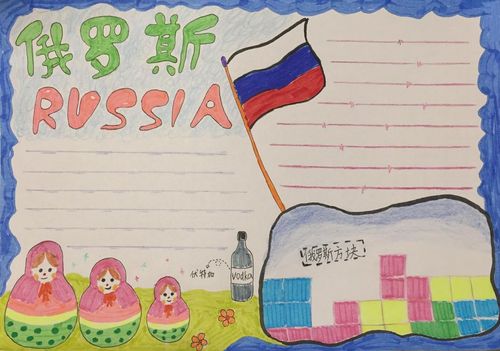 俄罗斯
RUSSIA
俄罗斯方块
伏特加
vodka